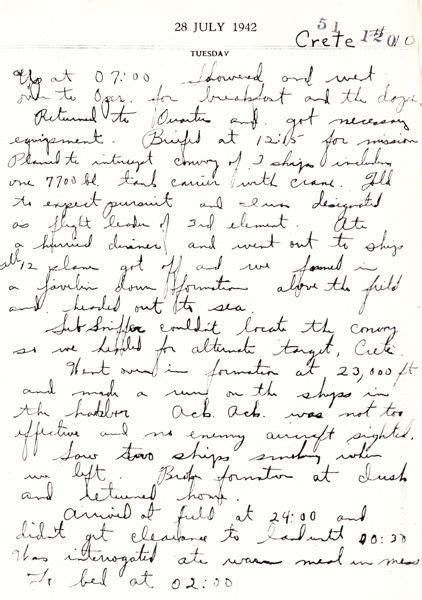 28 JULY 1942
51
Crete
TUESDAY
Up at 07:00 Showered and went
over to Oper. for breakfast and the dope.
Returned to Quarters and got necessary
equipment. Briefed at 12:15 for mission
Planed to intercept convoy of 3 ships including
one 7700 bl. tank carrier with crane. Told
to expect pursuit and I was designated
as flight leader of 3rd element. Ate
a hurried dinner and went out to ships
all 12 planes got off and we formed in
a javelin down formation above the field
and headed out to sea.
Sub Sniffer couldn't locate the convoy
so we headed for alternate target, Crete.
Went over in formation at 23,000 ft
and made a run on the ships in
the harbor Ack. Ack. was not too
effective and no enemy aircraft sighted.
Saw two ships smoking when
we left. Broke formation at dusk
and returned home.
Arrived at field at 24:00 and
didn't get clearance to land until 00:30
Was interrogated ate warm meal in mess
To bed at 02:00